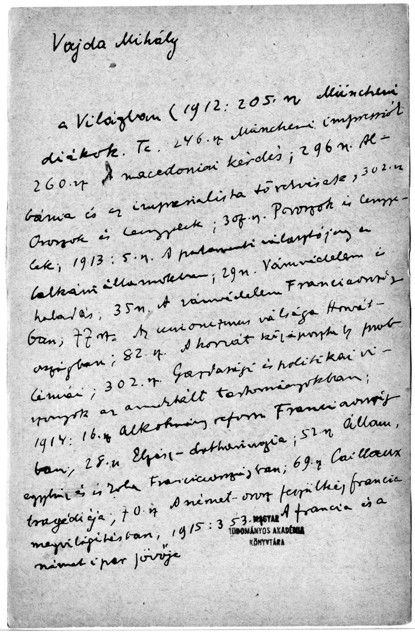 Vajda Mihály
a Világban (1912: 205. n. Müncheni
diákok. Te. 246. n. Müncheni impressiók
260. n. A macedoniai kérdés; 296 n. Al-
bánia és az imperialista törekvések, 302. n.
Oroszok és lengyelek; 307. n. Poroszok és lengye-
lek; 1913: 5. n. A választójog a
balkáni államokban; 29 n. Vámvédelem és
haladás; 35 n. A vámvédelem Franciaország-
ban; 77 n. Az unionizmus válsága Horvát-
országban; 82. n. A horvát középosztály prob
lémái; 302. n. Gazdasági és politikai vi-
szonyok az annektált tartományokban;
1914: 16. n. Alkotmány reform Franciaország
ban; 28. n. Elzász-Lotharingia; 52 n. Állam,
egyház és iskola Franciaországban; 69. n. Caillaux
tragédiája; 70. n. A német-orosz feszültség francia
megvilágításban, 1915: 353. A francia és a
német ipar jövője
MAGYAR
TUDOMÁNYOS AKADÉMIA
KÖNYVTÁRA